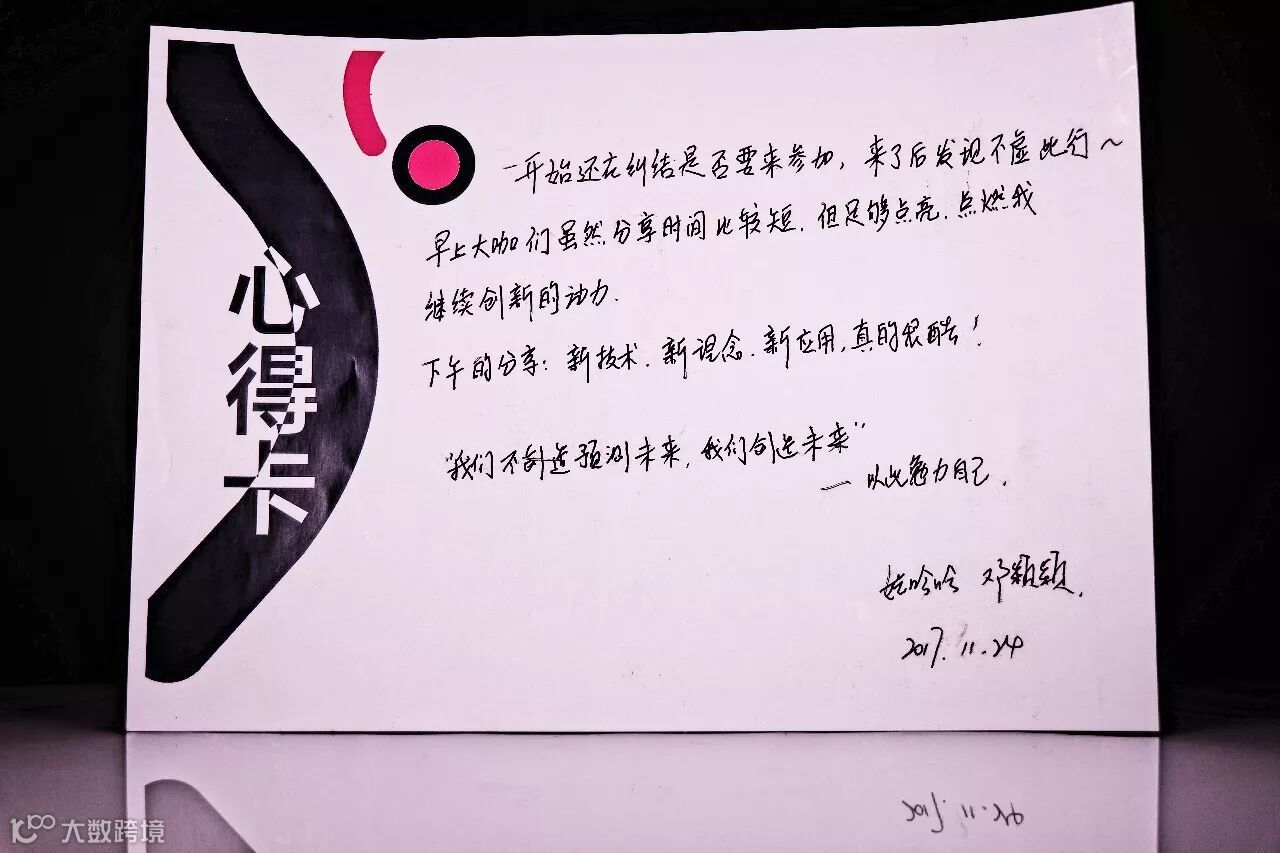 心得卡
一开始还在纠结是否要来参加，来了后发现不虚此行～
早上大咖们虽然分享时间比较短，但足够点亮、点燃我
继续创新的动力．
下午的分享：新技术、新理念、新应用，真的很酷！
“我们不预测未来，我们创造未来”
— 以此勉力自己．
娃哈哈 邓颖颖．
2017.11.24
大数跨境